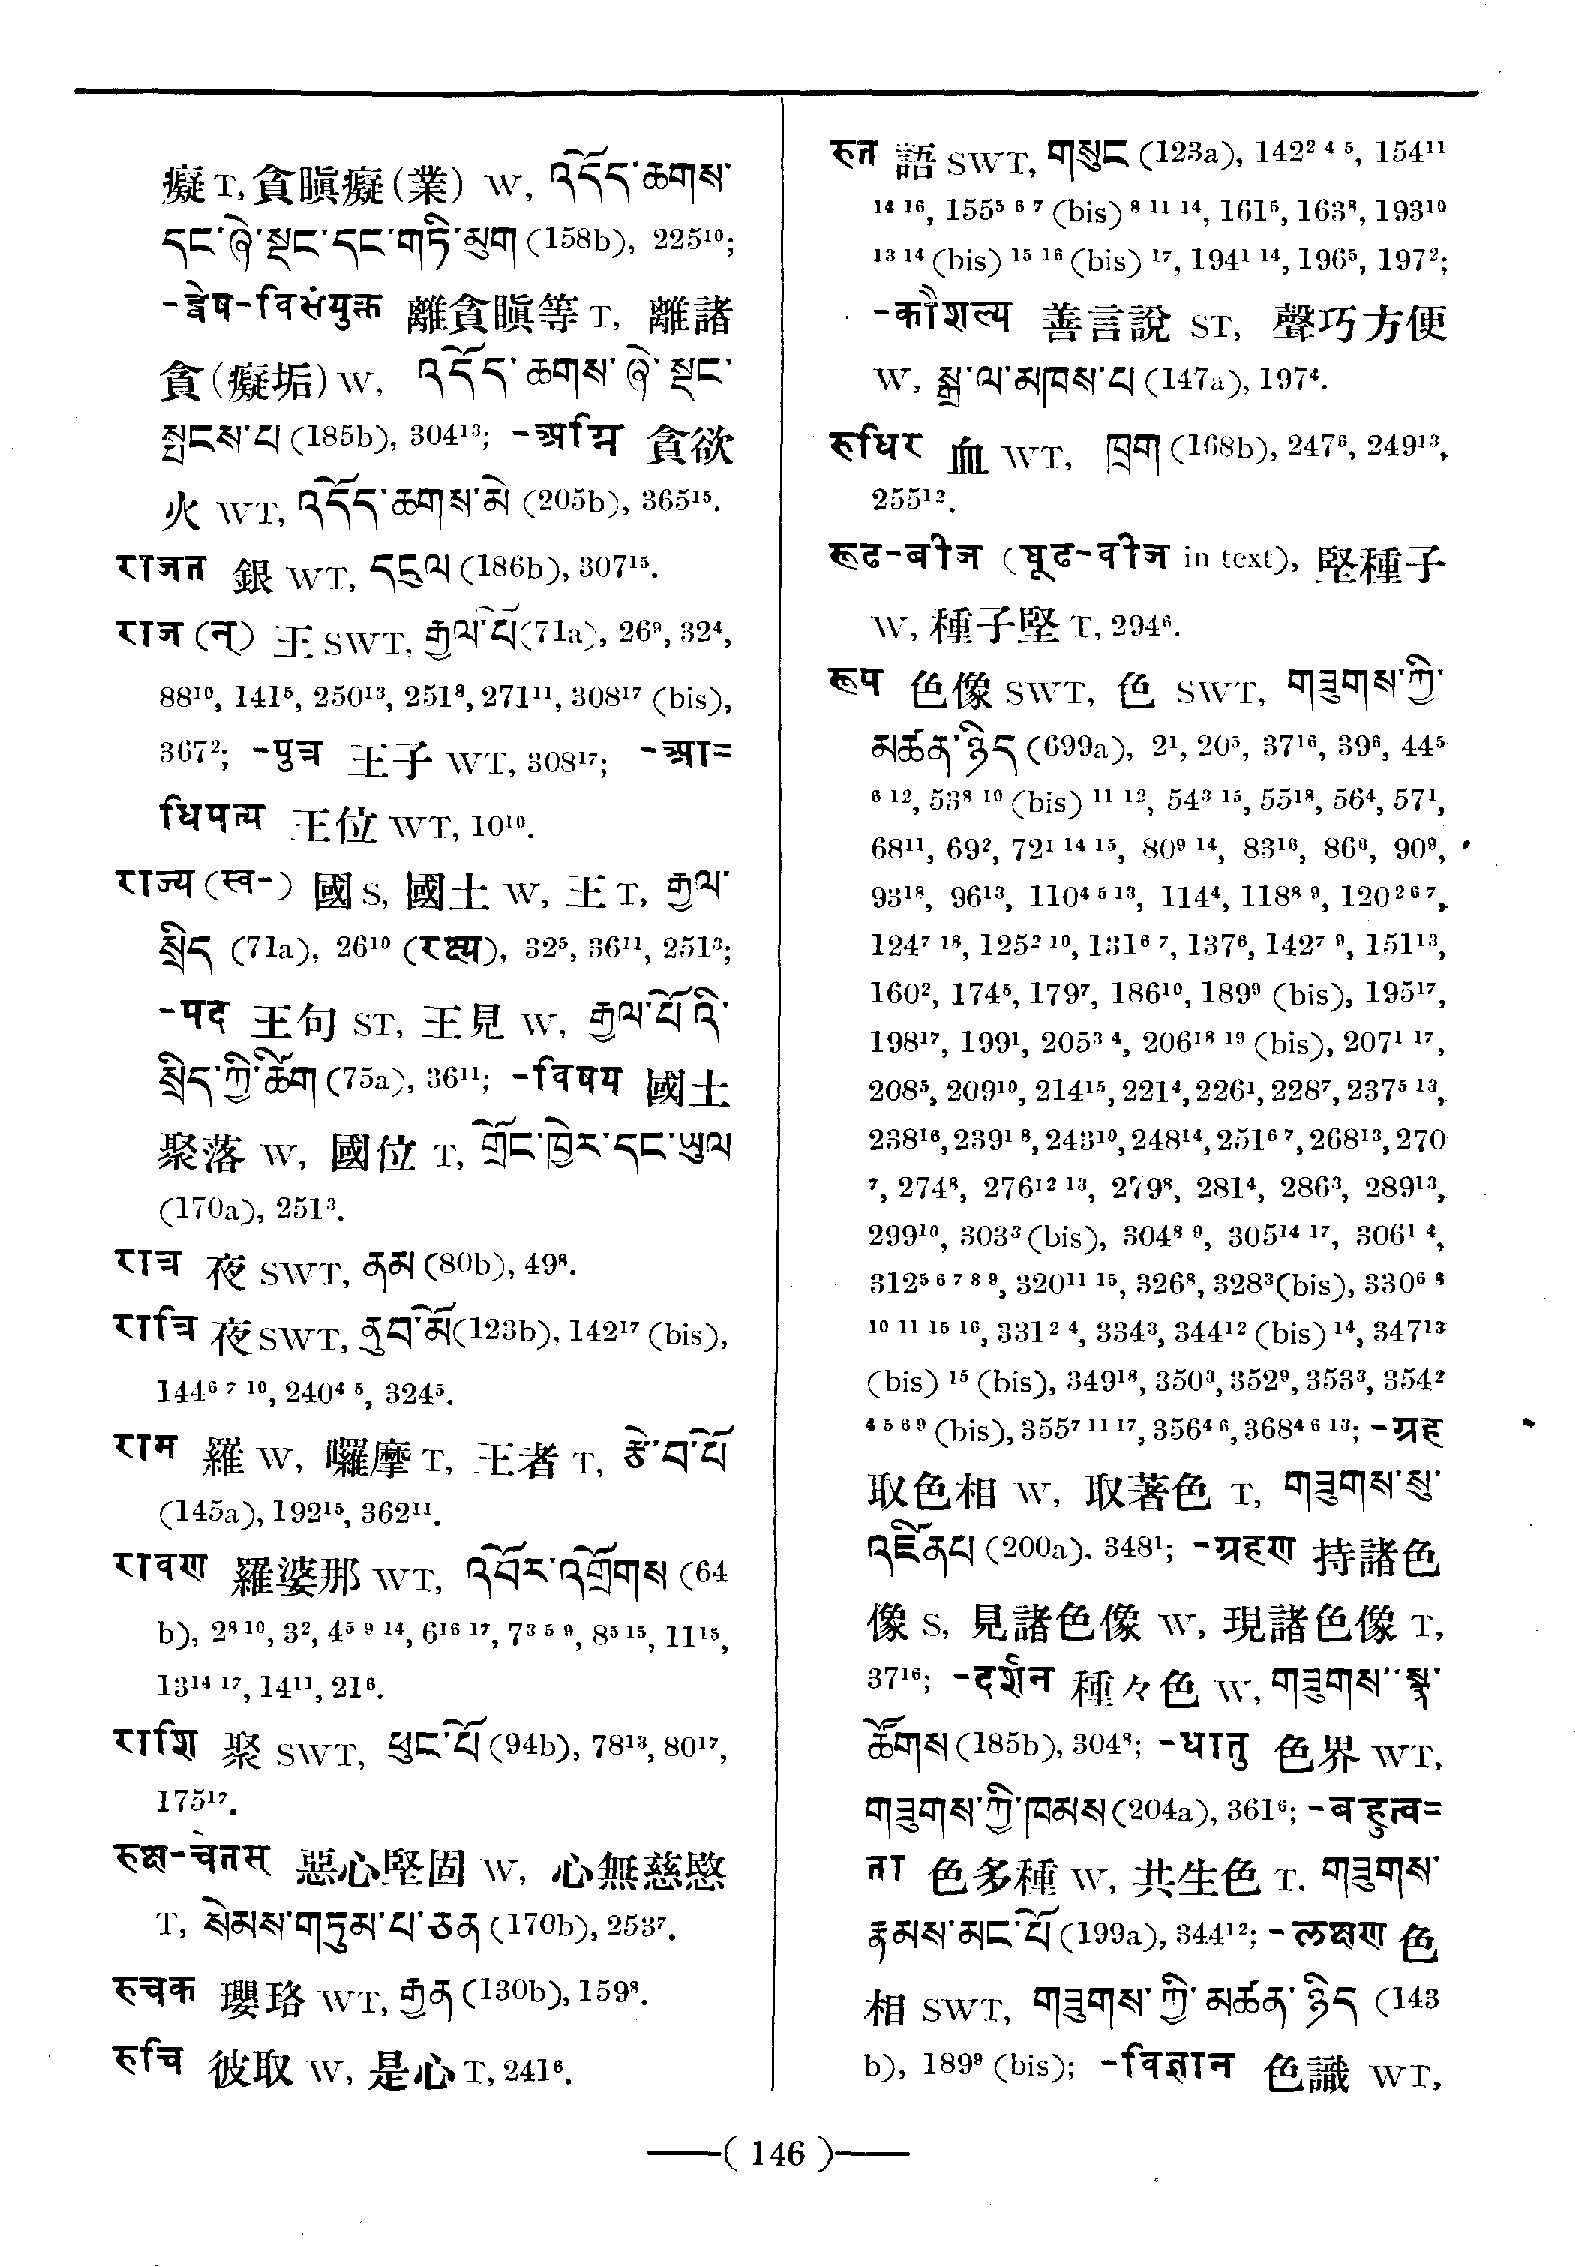 癡 T, 貪瞋癡(業) W, འདོད་ཆགས་
དང་ཞེ་སྡང་དང་གཏི་མུག (158b), 225¹⁰;
-द्वेष-विसंयुक्त 離貪瞋等 T, 離諸
貪(癡垢) W, འདོད་ཆགས་ཞེ་སྡང་
སྤངས་པ (185b), 304¹³; -अग्नि 貪欲
火 WT, འདོད་ཆགས་མེ (205b), 365¹⁵.
राजत 銀 WT, དངུལ (186b), 307¹⁵.
राज (न्) 王 SWT, རྒྱལ་པོ (71a), 26⁹, 32⁴,
88¹⁰, 141⁵, 250¹³, 251⁸, 271¹¹, 308¹⁷ (bis),
367²; -पुत्र 王子 WT, 308¹⁷; -आ=
धिपत्य 王位 WT, 10¹⁰.
राज्य (स्व-) 國 S, 國土 W, 王 T, རྒྱལ་
སྲིད (71a), 26¹⁰ (रक्ष्य), 32⁵, 36¹¹, 251³;
-पद 王句 ST, 王見 W, རྒྱལ་པོའི་
སྲིད་ཀྱི་ཚིག (75a), 36¹¹; -विषय 國土
聚落 W, 國位 T, གྲོང་ཁྱེར་དང་ཡུལ
(170a), 251³.
रात्र 夜 SWT, ནམ (80b), 49⁸.
रात्रि 夜 SWT, ནུབ་མོ (123b), 142¹⁷ (bis),
144⁶ ⁷ ¹⁰, 240⁴ ⁵, 324⁵.
राम 羅 W, 囉摩 T, 王者 T, རྩེ་བ་པོ
(145a), 192¹⁵, 362¹¹.
रावण 羅婆那 WT, འབོར་འགྲོགས (64
b), 2⁸ ¹⁰, 3², 4⁵ ⁹ ¹⁴, 6¹⁶ ¹⁷, 7³ ⁵ ⁹, 8⁵ ¹⁵, 11¹⁵,
13¹⁴ ¹⁷, 14¹¹, 21⁶.
राशि 聚 SWT, ཕུང་པོ (94b), 78¹³, 80¹⁷,
175¹⁷.
रुक्ष-चेतस् 惡心堅固 W, 心無慈愍
T, སེམས་གཏུམ་པ་ཅན (170b), 253⁷.
रुचक 瓔珞 WT, རྒྱན (130b), 159⁸.
रुचि 彼取 W, 是心 T, 241⁶.
रुत 語 SWT, གསུང (123a), 142² ⁴ ⁵, 154¹¹
¹⁴ ¹⁶, 155⁵ ⁶ ⁷ (bis) ⁸ ¹¹ ¹⁴, 161⁵, 163⁸, 193¹⁰
¹³ ¹⁴ (bis) ¹⁵ ¹⁶ (bis) ¹⁷, 194¹ ¹⁴, 196⁵, 197²;
-कौशल्य 善言說 ST, 聲巧方便
W, སྒྲ་ལ་མཁས་པ (147a), 197⁴.
रुधिर 血 WT, ཁྲག (168b), 247⁶, 249¹³,
255¹².
रूढ-बीज (घूढ-वीज in text), 堅種子
W, 種子堅 T, 294⁶.
रूप 色像 SWT, 色 SWT, གཟུགས་ཀྱི་
མཚན་ཉིད (699a), 2¹, 20⁵, 37¹⁶, 39⁶, 44⁵
⁶ ¹², 53⁸ ¹⁰ (bis) ¹¹ ¹², 54³ ¹⁵, 55¹⁸, 56⁴, 57¹,
68¹¹, 69², 72¹ ¹⁴ ¹⁵, 80⁹ ¹⁴, 83¹⁶, 86⁶, 90⁹,
93¹⁸, 96¹³, 110⁴ ⁵ ¹³, 114⁴, 118⁸ ⁹, 120² ⁶ ⁷,
124⁷ ¹⁸, 125² ¹⁰, 131⁶ ⁷, 137⁶, 142⁷ ⁹, 151¹³,
160², 174⁵, 179⁷, 186¹⁰, 189⁹ (bis), 195¹⁷,
198¹⁷, 199¹, 205³ ⁴, 206¹⁸ ¹⁹ (bis), 207¹ ¹⁷,
208⁵, 209¹⁰, 214¹⁵, 221⁴, 226¹, 228⁷, 237⁵ ¹³,
238¹⁶, 239¹ ⁸, 243¹⁰, 248¹⁴, 251⁶ ⁷, 268¹³, 270
⁷, 274⁸, 276¹² ¹³, 279⁸, 281⁴, 286³, 289¹³,
299¹⁰, 303³ (bis), 304⁸ ⁹, 305¹⁴ ¹⁷, 306¹ ⁴,
312⁵ ⁶ ⁷ ⁸ ⁹, 320¹¹ ¹⁵, 326⁸, 328³ (bis), 330⁶ ⁸
¹⁰ ¹¹ ¹⁵ ¹⁶, 331² ⁴, 334³, 344¹² (bis) ¹⁴, 347¹³
(bis) ¹⁵ (bis), 349¹⁸, 350³, 352⁹, 353³, 354²
⁴ ⁵ ⁶ ⁹ (bis), 355⁷ ¹¹ ¹⁷, 356⁴ ⁶, 368⁴ ⁶ ¹³; -ग्रह
取色相 W, 取著色 T, གཟུགས་སུ་
འཛིནཔ (200a), 348¹; -ग्रहण 持諸色
像 S, 見諸色像 W, 現諸色像 T,
37¹⁶; -दर्शन 種々色 W, གཟུགས་སྣ་
ཚོགས (185b), 304⁸; -धातु 色界 WT,
གཟུགས་ཀྱི་ཁམས (204a), 361⁶; -बहुत्व=
ता 色多種 W, 共生色 T, གཟུགས་
རྣམས་མང་པོ (199a), 344¹²; -लक्षण 色
相 SWT, གཟུགས་ཀྱི་མཚན་ཉིད (143
b), 189⁹ (bis); -विज्ञान 色識 WT,
—( 146 )—